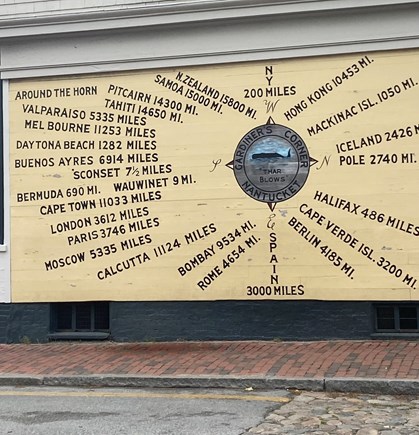 N.ZEALAND 15800 MI.
SAMOA 15000 MI.
AROUND THE HORN
PITCAIRN 14300 MI.
TAHITI 14650 MI.
VALPARAISO 5335 MILES
MEL BOURNE 11253 MILES
DAYTONA BEACH 1282 MILES
BUENOS AYRES 6914 MILES
'SCONSET 7½ MILES
BERMUDA 690 MI.
WAUWINET 9 MI.
CAPE TOWN 11033 MILES
LONDON 3612 MILES
PARIS 3746 MILES
MOSCOW 5335 MILES
CALCUTTA 11124 MILES
BOMBAY 9534 MI.
ROME 4654 MI.
NY
200 MILES
W
S
N
E
GARDINER'S CORNER
"THAR BLOWS"
NANTUCKET
SPAIN
3000 MILES
HONG KONG 10453 MI.
MACKINAC ISL. 1050 MI.
ICELAND 2426 M
POLE 2740 MI.
HALIFAX 486 MILES
CAPE VERDE ISL. 3200 MI.
BERLIN 4185 MI.